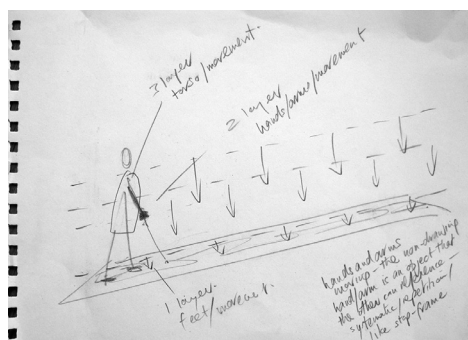 3 layer
torso/movement.
2 layer
hands/arms/movement
1 layer.
feet/movement.
hands and arms
the non-drawing
hand/arm is an object that
the other can reference –
systematic/repetition/
like stop-frame